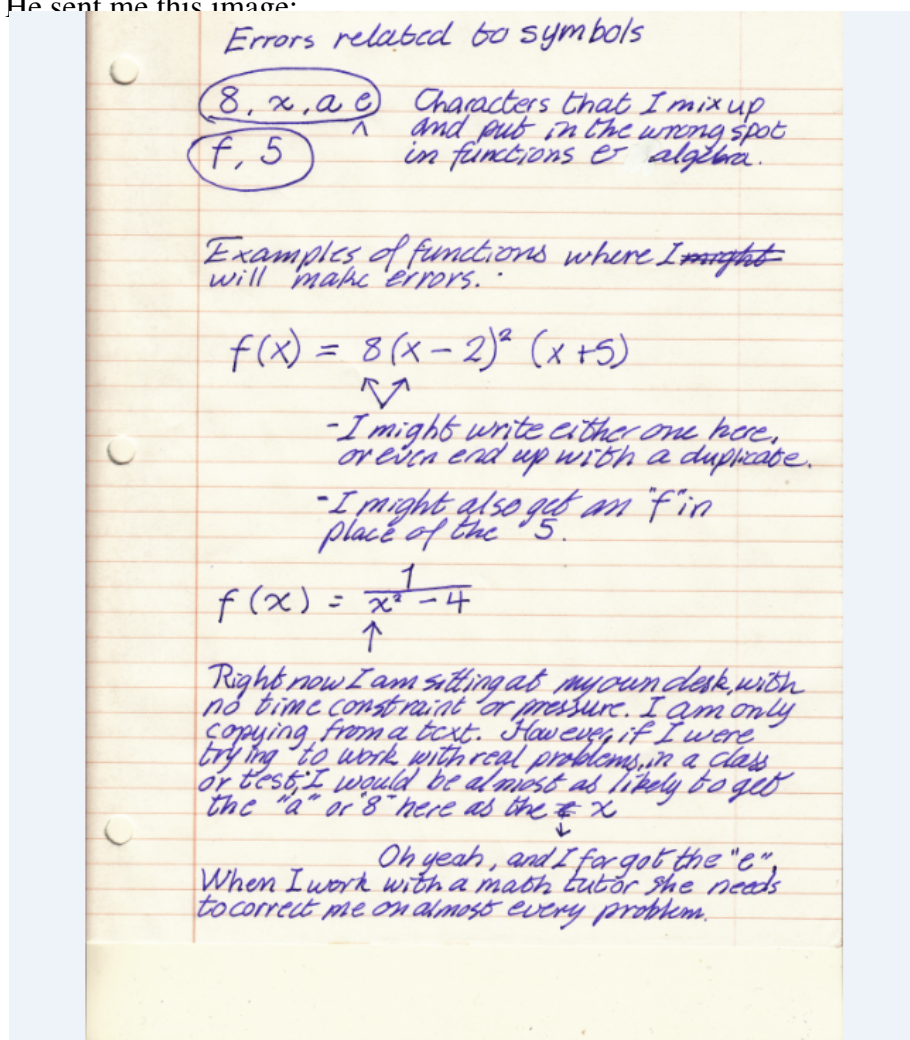 He sent me this image:
Errors related to symbols
8, x, a e Characters that I mix up
^ and put in the wrong spot
f, 5 in functions & algebra.
Examples of functions where I might
will make errors.
f(x) = 8(x – 2)² (x+5)
- I might write either one here,
or even end up with a duplicate.
- I might also get an "f" in
place of the 5.
f(x) = 1
x² – 4
Right now I am sitting at my own desk, with
no time constraint or pressure. I am only
copying from a text. However, if I were
trying to work with real problems, in a class
or test, I would be almost as likely to get
the "a" or "8" here as the x
Oh yeah, and I forgot the "e",
When I work with a math tutor she needs
to correct me on almost every problem.